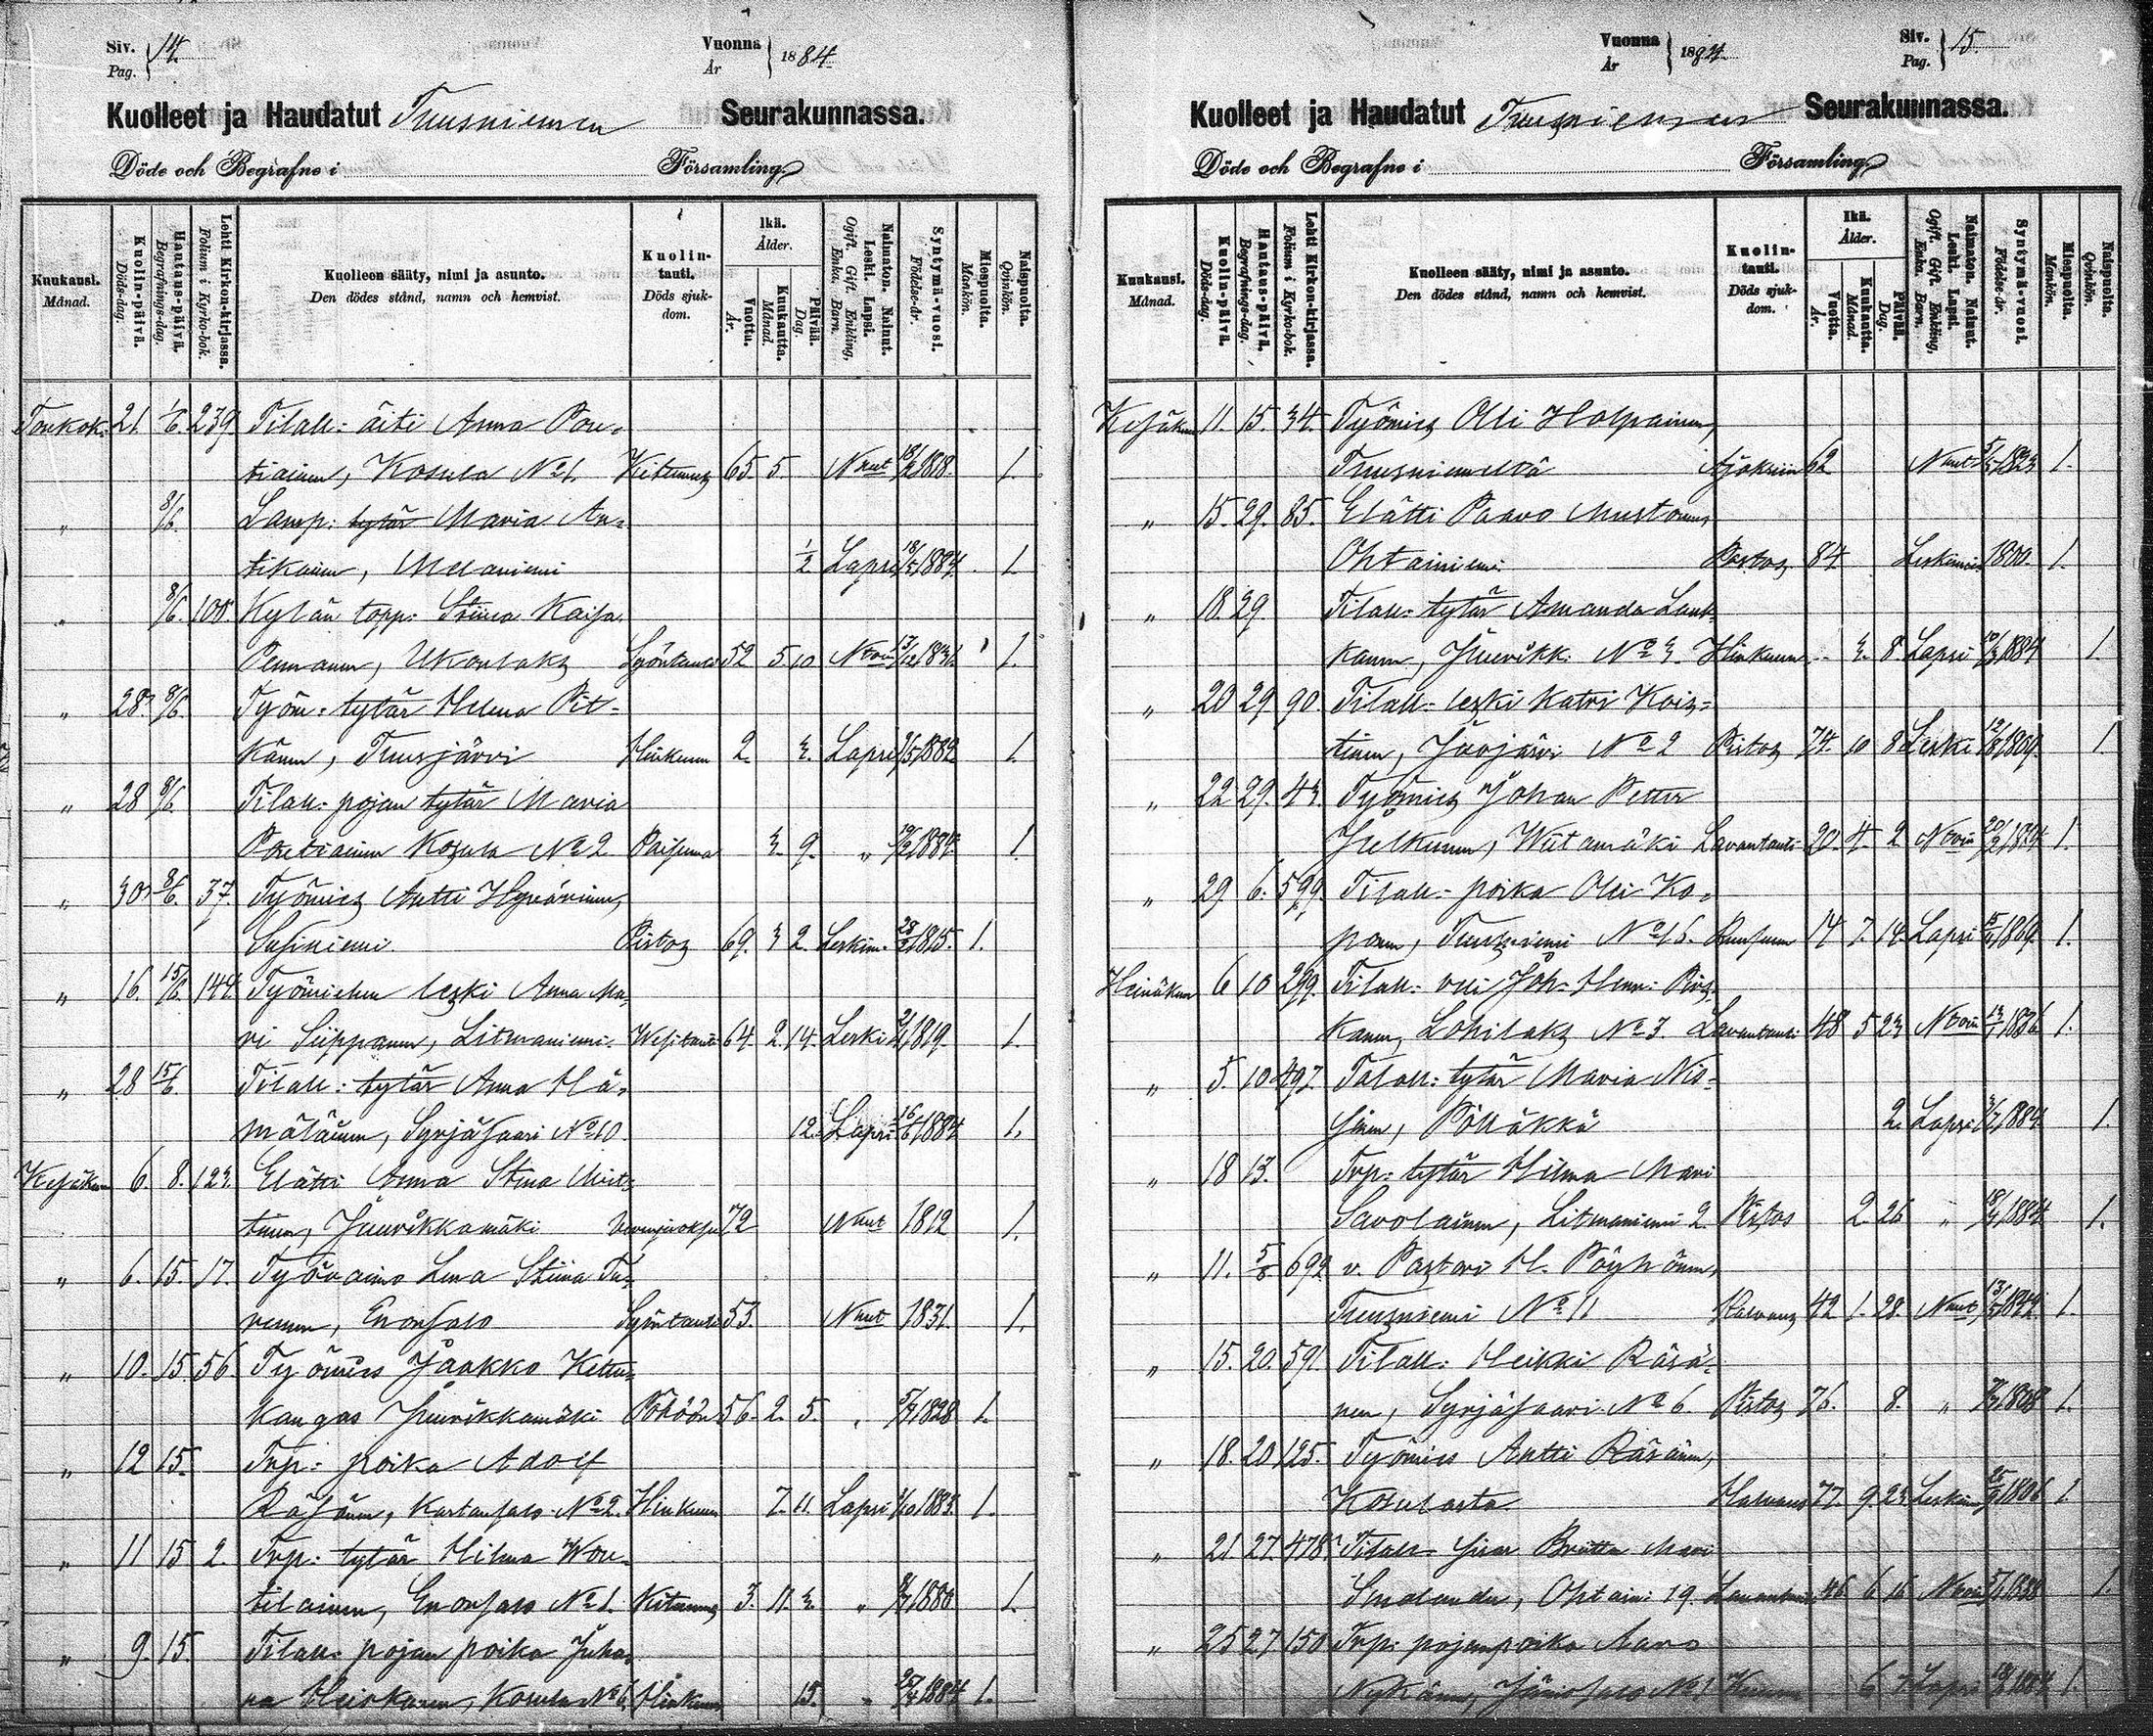 Siv. Pag. 14.
Vuonna År 1884.
Kuolleet ja Haudatut Tuusniemen Seurakunnassa.
Döde och Begrafne i Församling.
Kuukausi. Månad.
Kuolin-päivä. Döds-dag.
Hautaus-päivä. Begrafnings-dag.
Lehti Kirkon-kirjassa. Folium i Kyrko-bok.
Kuolleen sääty, nimi ja asunto. Den dödes stånd, namn och hemvist.
Kuolin-tauti. Döds sjuk-dom.
Ikä. Ålder.
Vuotta. År.
Kuukautta. Månad.
Päivää. Dag.
Naimaton. Nainut. Leski. Lapsi. Ogift. Gift. Enkling, Enka. Barn.
Syntymä-vuosi. Födelse-år.
Miespuolta. Mankön.
Naispuolta. Qvinkön.
Toukok. 21. 1/6. 239. Tilall: äiti Anna Pou-
tiainen, Kosula No 1. 65. 5. Nnut 1818. 1.
" 8/6. Lamp: tytär Maria An-
tikainen, Melaniemi 1/2 Lapsi 18/5 1884. 1.
" 8/6. 105. Kylän topp: Stiina Kaisa
Pennanen, Ukonlaks Syöntauti 52 5. 10 1.
" 28. 8/6. Työm: tytär Helena Pit-
känen, Tuusjärvi Hinkunen 2. 3. Lapsi 1882. 1.
" 28 8/6. Tilall: pojan tytär Maria
Poutiainen Kosula No 2 Paisuma 3. 9. " 19/2 1884. 1.
" 30. 8/6. 37. Työmies Antti Hyvärinen,
Susiniemi. Pistos 69. 3 2. Leskim. 28/2 1815. 1.
" 16. 15/6. 144. Työmiehen leski Anna Ma-
ri Siippanen, Litmaniemi. Wesitauti 64. 2. 14. Leski 1819. 1.
" 28 15/6. Tilall: tytär Anna Hä-
mäläinen, Syrjäsaari No 10. 12. Lapsi 16/5 1884 1.
Kesäkuu 6. 8. 123. Elätti Anna Stina Miet-
tinen, Juurikkamäki 72 Nnut 1812 1.
" 6. 15. 17. Työvaimo Lena Stiina Tu-
runen, Enonsalo Syöntauti 53. Nnut 1831. 1.
" 10. 15. 56. Työmies Jaakko Kettu-
kangas Juurikkamäki 56. 2. 5. " 1828 1.
" 12 15. Trp: poika Adolf
Räsänen, Kartansalo No 2. Hinkunen 7. 11. Lapsi 1883. 1.
" 11 15 2. Trp: tytär Hilma Wou-
tilainen, Enonsalo No 1. 3. 11. 3. " 1880 1.
" 9. 15. Tilall: pojan poika Juha-
na Heiskanen, Kosula No 6. Hinkunen 13. " 1884 1.
Siv. Pag. 15.
Vuonna År 1884.
Kuolleet ja Haudatut Tuusniemen Seurakunnassa.
Döde och Begrafne i Församling.
Kuukausi. Månad.
Kuolin-päivä. Döds-dag.
Hautaus-päivä. Begrafnings-dag.
Lehti Kirkon-kirjassa. Folium i Kyrko-bok.
Kuolleen sääty, nimi ja asunto. Den dödes stånd, namn och hemvist.
Kuolin-tauti. Döds sjuk-dom.
Ikä. Ålder.
Vuotta. År.
Kuukautta. Månad.
Päivää. Dag.
Naimaton. Nainut. Leski. Lapsi. Ogift. Gift. Enkling, Enka. Barn.
Syntymä-vuosi. Födelse-år.
Miespuolta. Mankön.
Naispuolta. Qvinkön.
Kesäkuu 11. 15. 34. Työmies Olli Holpainen,
Tuusniemeltä 62 Nnut 1.
" 15. 29. 85. Elätti Paavo Mustonen,
Ohtainiemi 84. Leskimies 1800. 1.
" 18. 29 Tilall: tytär Amanda Lauk-
kanen, Juurikk: No 3. Hinkunen 3. 8. Lapsi 10/3 1884 1.
" 20 29 90. Tilall: leski Katri Kois-
tinen, Juojärvi No 2 Pistos 74. 10 8 Leski 12/8 1809. 1.
" 22 29. 43. Työmies Johan Petter
Julkunen, Wiitamäki Lavantauti 20. 4. 2 1.
" 29 6. 599. Tilall: poika Olli Ko-
ponen, Tuusniemi No 16. 14 7. 14. Lapsi 1869. 1.
Heinäkuu 6 10 299. Tilall: veli Joh: Henr: Pirs-
kanen, Lohilaks No 3. Lavantauti 48 5 23 13/1 1836 1.
" 5. 10 497. Talall: tytär Maria Nis-
sinen, Pölläkkä 2. Lapsi 3/7 1884. 1.
" 18 13. Trp: tytär Hilma Mari
Savolainen, Litmaniemi 2 Pistos 2. 26 " 1884. 1.
" 11. 5/8 692 v. Pastori H. Pöyhönen,
Tuusniemi No 11 Halvaus 42 1. 28. Nnut 1842. 1.
" 15. 20. 591. Tilall: Heikki Räsä-
nen, Syrjäsaari No 6. Pistos 76. 8. " 1808 1.
" 18. 20 125. Työmies Antti Räsänen,
Kosulasta Halvaus 77. 9. 23. Leskim. 25/9 1806 1.
" 21 27. 478. Tilall: sisar Britta Mari
Smolander, Ohtain: 19. Lavantauti 46 6 16 1.
" 25 27 150 Trp: pojanpoika Aaro
Nykänen, Jänissalo No 1 6 7 Lapsi 1.